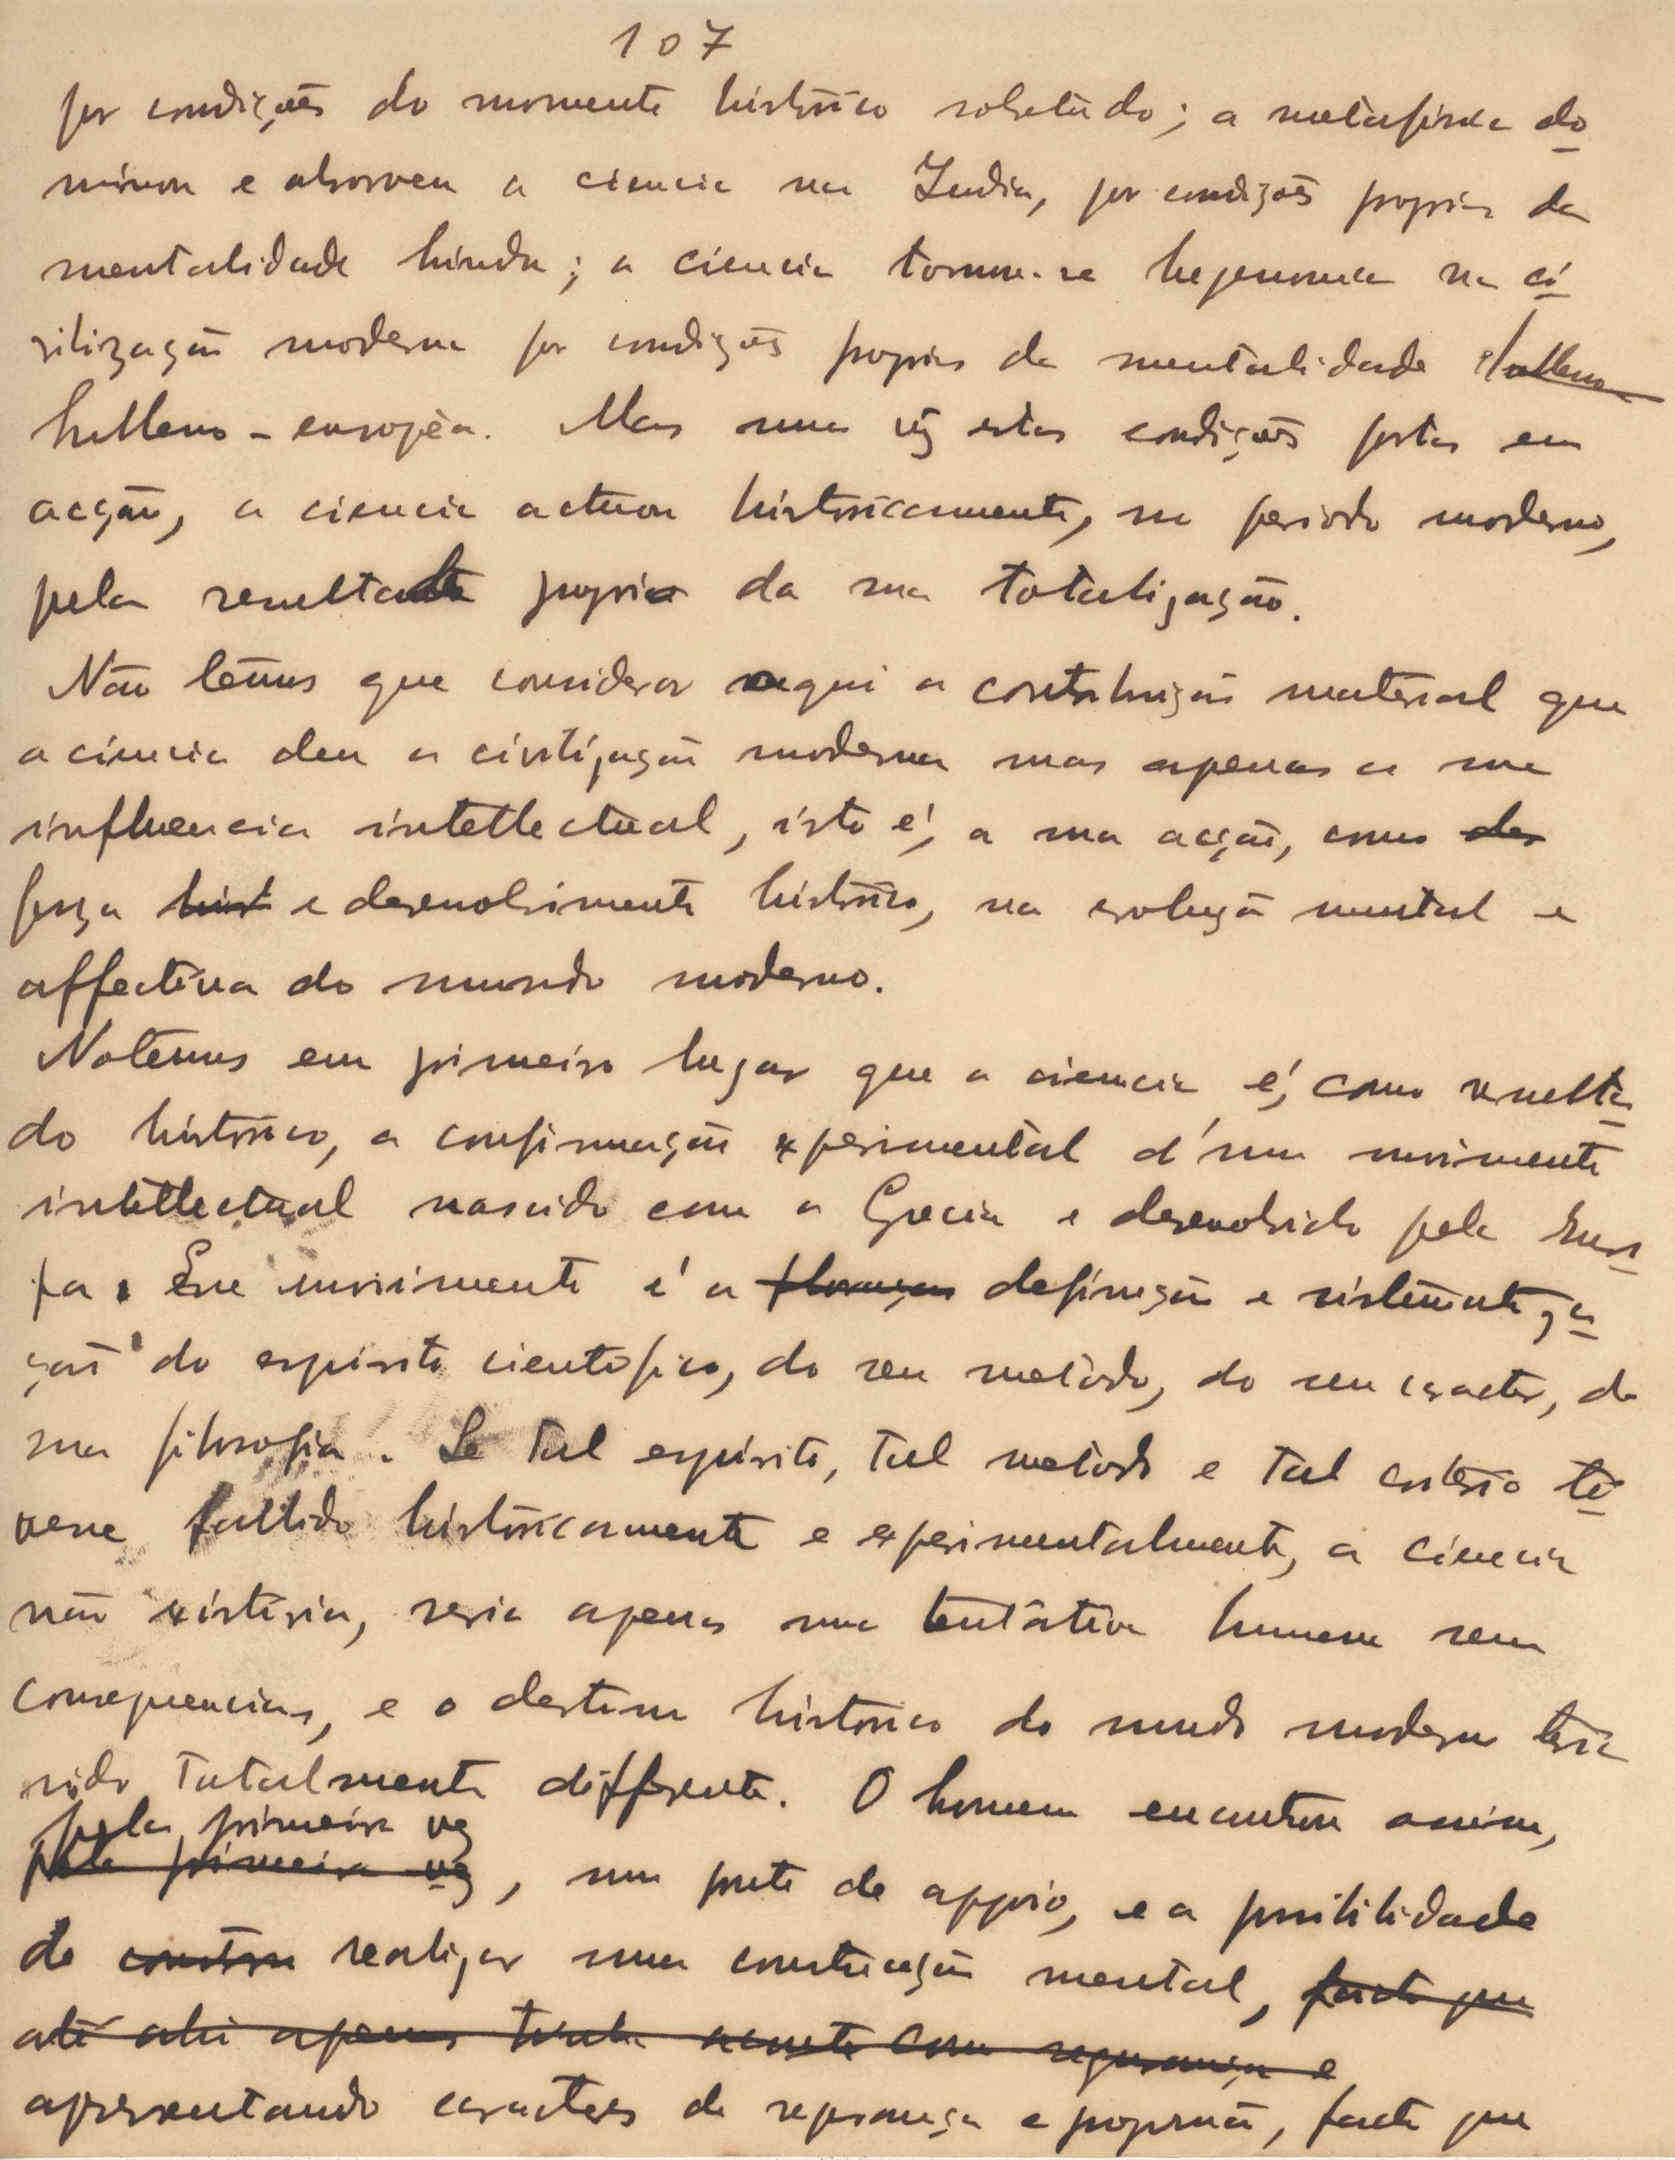 107
por condições do momento histórico sobretudo; a metafisica do
minou e absorveu a ciencia na India, por condições proprias da
mentalidade hindu; a ciencia tornou-se hegemonica na ci
vilização moderna por condições proprias da mentalidade
helleno-européa. Mas uma vez estas condições postas em
acção, a ciencia actuou históricamente, no periodo moderno,
pela resultante propria da sua totalização.
Não temos que considerar aqui a contribuição material que
a ciencia deu a civilização moderna mas apenas a sua
influencia intellectual, isto é, a sua acção, como de
força hist e desenvolvimento histórico, na evolução mental e
affectiva do mundo moderno.
Notemos em primeiro lugar que a ciencia é, como resulta
do histórico, a confirmação experimental d'um movimento
intellectual nascido com a Grecia e desenvolvido pela Euro
pa. Esse movimento é a definição e sistematiza
ção do espirito cientifico, do seu metodo, do seu caracter, da
sua filosofia. Se tal espirito, tal metodo e tal criterio ti
vesse fallido históricamente e experimentalmente, a ciencia
não existiria, seria apenas uma tentativa humana sem
consequencias, e o destino histórico do mundo moderno teria
sido totalmente differente. O homem encontrou assim,
pela primeira vez
pela primeira vez, um ponto de appoio, e a possibilidade
de constru realizar uma construcção mental, facto que
até ahi apenas tinha acento com segurança e
apresentando caracteres de segurança e progressão, facto que